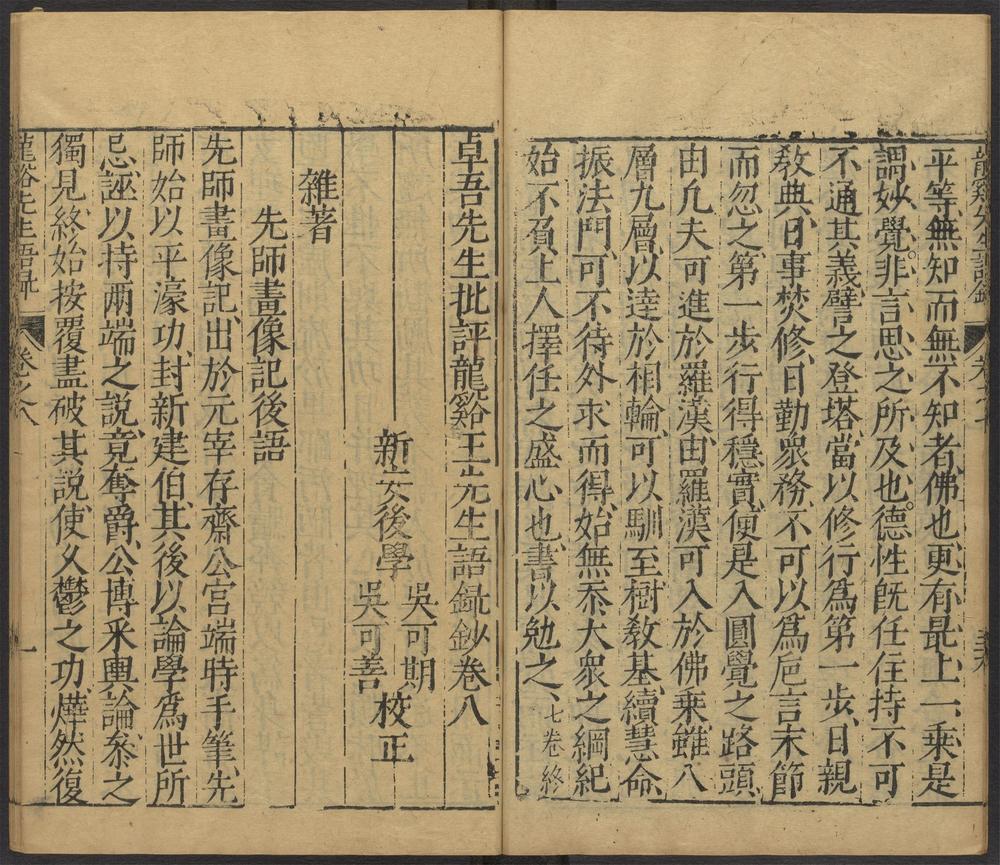 平等無知而無不知者佛也更有最上一乘是
謂妙覺非言思之所及也德性既任住持不可
不通其義譬之登塔當以修行爲第一步日親
敎典日事焚修日勤衆務不可以爲卮言末節
而忽之第一步行得穩實便是入圓覺之路頭
由凢夫可進於羅漢由羅漢可入於佛乘雖八
層九層以逹於相輪可以馴至樹敎基續慧命
振法門可不待外求而得始無忝大衆之綱紀
始不負上人擇任之盛心也書以勉之、七卷終
卓吾先生批評龍谿王先生語錄鈔卷八
新安後學 吳可期 吳可善 校正
雜著
先師畫像記後語
先師畫像記出於元宰存齋公宮端時手筆先
師始以平濠功封新建伯其後以論學爲世所
忌誣以持兩端之說竟奪爵公博采輿論叅之
獨見終始按覆盡破其説使久鬱之功燁然復
龍谿先生語錄 卷之八 一